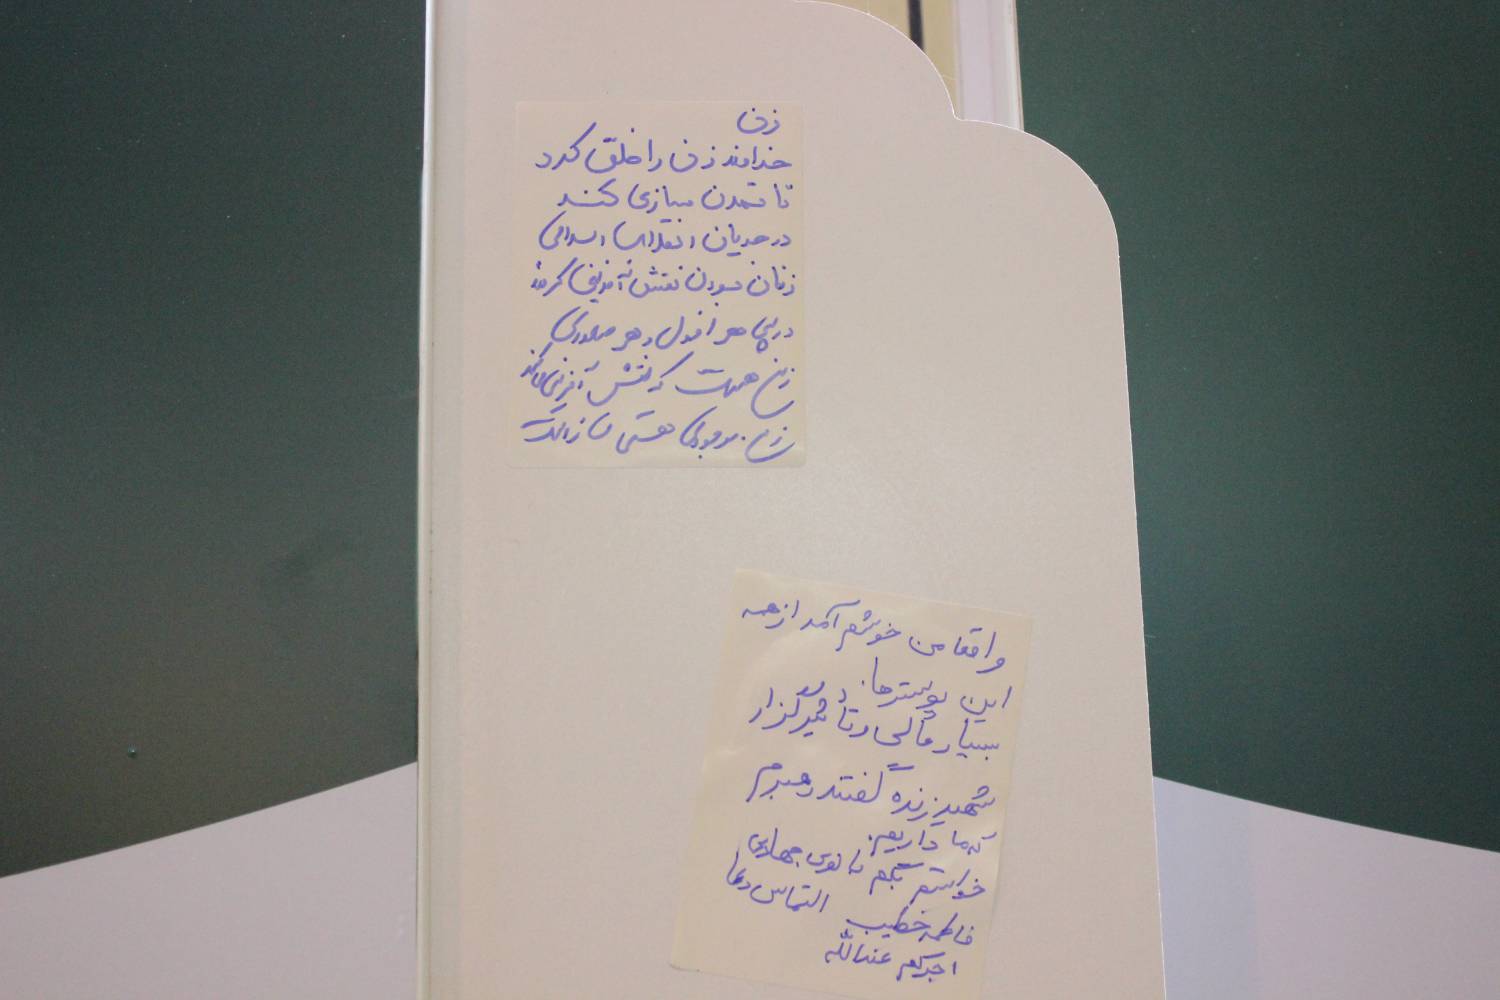 زن
خداوند زن را خلق کرد
تا تمدن سازی کند
در جریان انقلاب اسلامی
زنان نقش آفرینی کردند
در پی هر افول و هر
زن هست که نقش آفرینی می‌کند
زن هستی ساز است
واقعا من خوشم آمد از همه
این پوسترها.
بسیار عالی و تأثیر گذار بود
شهید زنده گفتند رهبرم
که ما داریم.
خواستم بگم بانوی جهادی
فاطمه خطیب التماس دعا
اجرکم عندالله